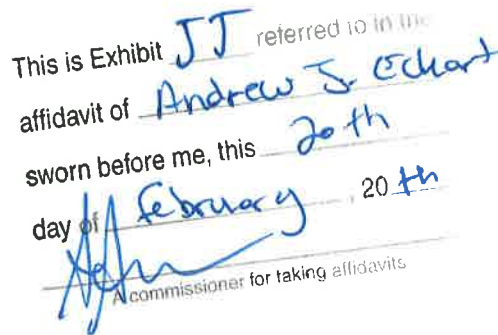 This is Exhibit JJ referred to in the
affidavit of Andrew J. Eckart
sworn before me, this 20th
day of February, 20 th
A commissioner for taking affidavits